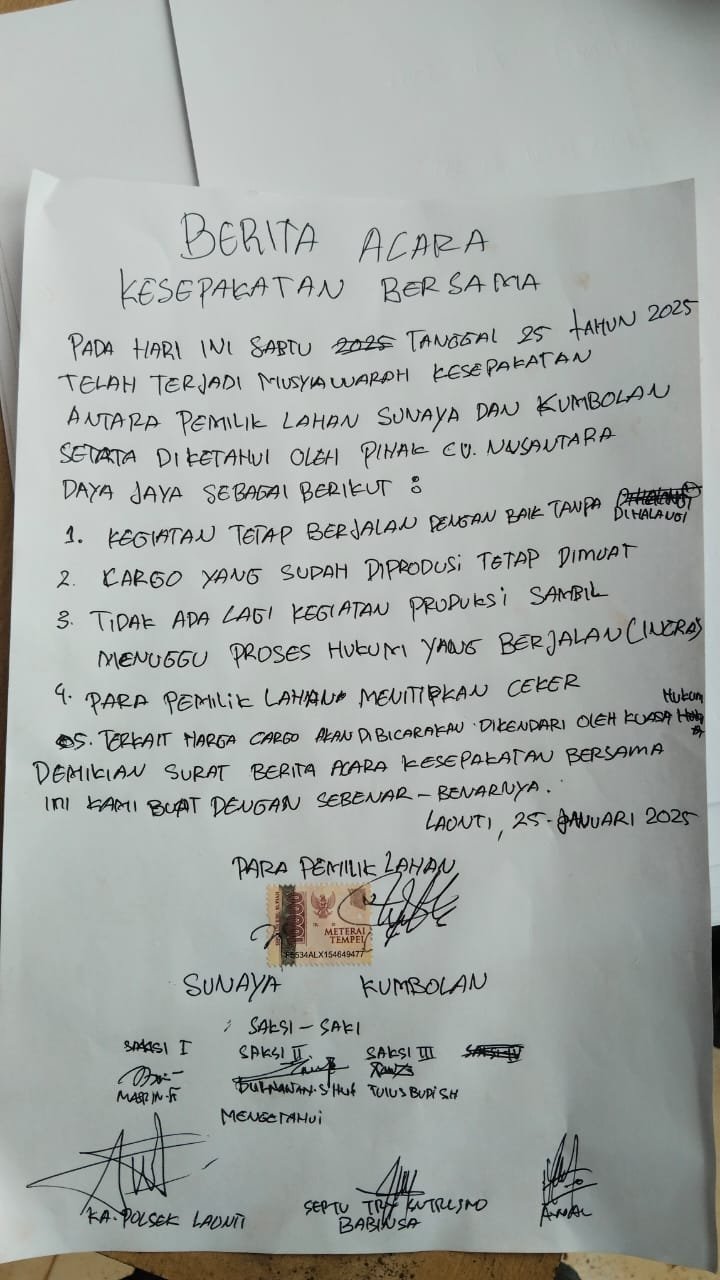 BERITA ACARA
KESEPAKATAN BERSAMA
PADA HARI INI SABTU 2025 TANGGAL 25 TAHUN 2025
TELAH TERJADI MUSYAWARAH KESEPAKATAN
ANTARA PEMILIK LAHAN SUNAYA DAN KUMBOLAN
SETATA DIKETAHUI OLEH PIHAK CV. NUSANTARA
DAYA JAYA SEBAGAI BERIKUT :
1. KEGIATAN TETAP BERJALAN DENGAN BAIK TANPA DIHALANGI
2. CARGO YANG SUDAH DIPRODUSI TETAP DIMUAT
3. TIDAK ADA LAGI KEGIATAN PRODUKSI SAMBIL
MENUGGU PROSES HUKUM YANG BERJALAN (INCRA)
4. PARA PEMILIK LAHAN MENITIPKAN CEKER
5. TERKAIT HARGA CARGO AKAN DIBICARAKAN DIKENDARI OLEH KUASA HUKUM
DEMIKIAN SURAT BERITA ACARA KESEPAKATAN BERSAMA
INI KAMI BUAT DENGAN SEBENAR-BENARNYA.
LAONTI, 25-JANUARI 2025
PARA PEMILIK LAHAN
10000
METERAI
TEMPEL
534ALX154649477
SUNAYA KUMBOLAN
SAKSI - SAKI
SAKSI I SAKSI II SAKSI III SAKSI IV
TULUS BUDI SH
MENGETAHUI
KA. POLSEK LAONTI
BABINSA